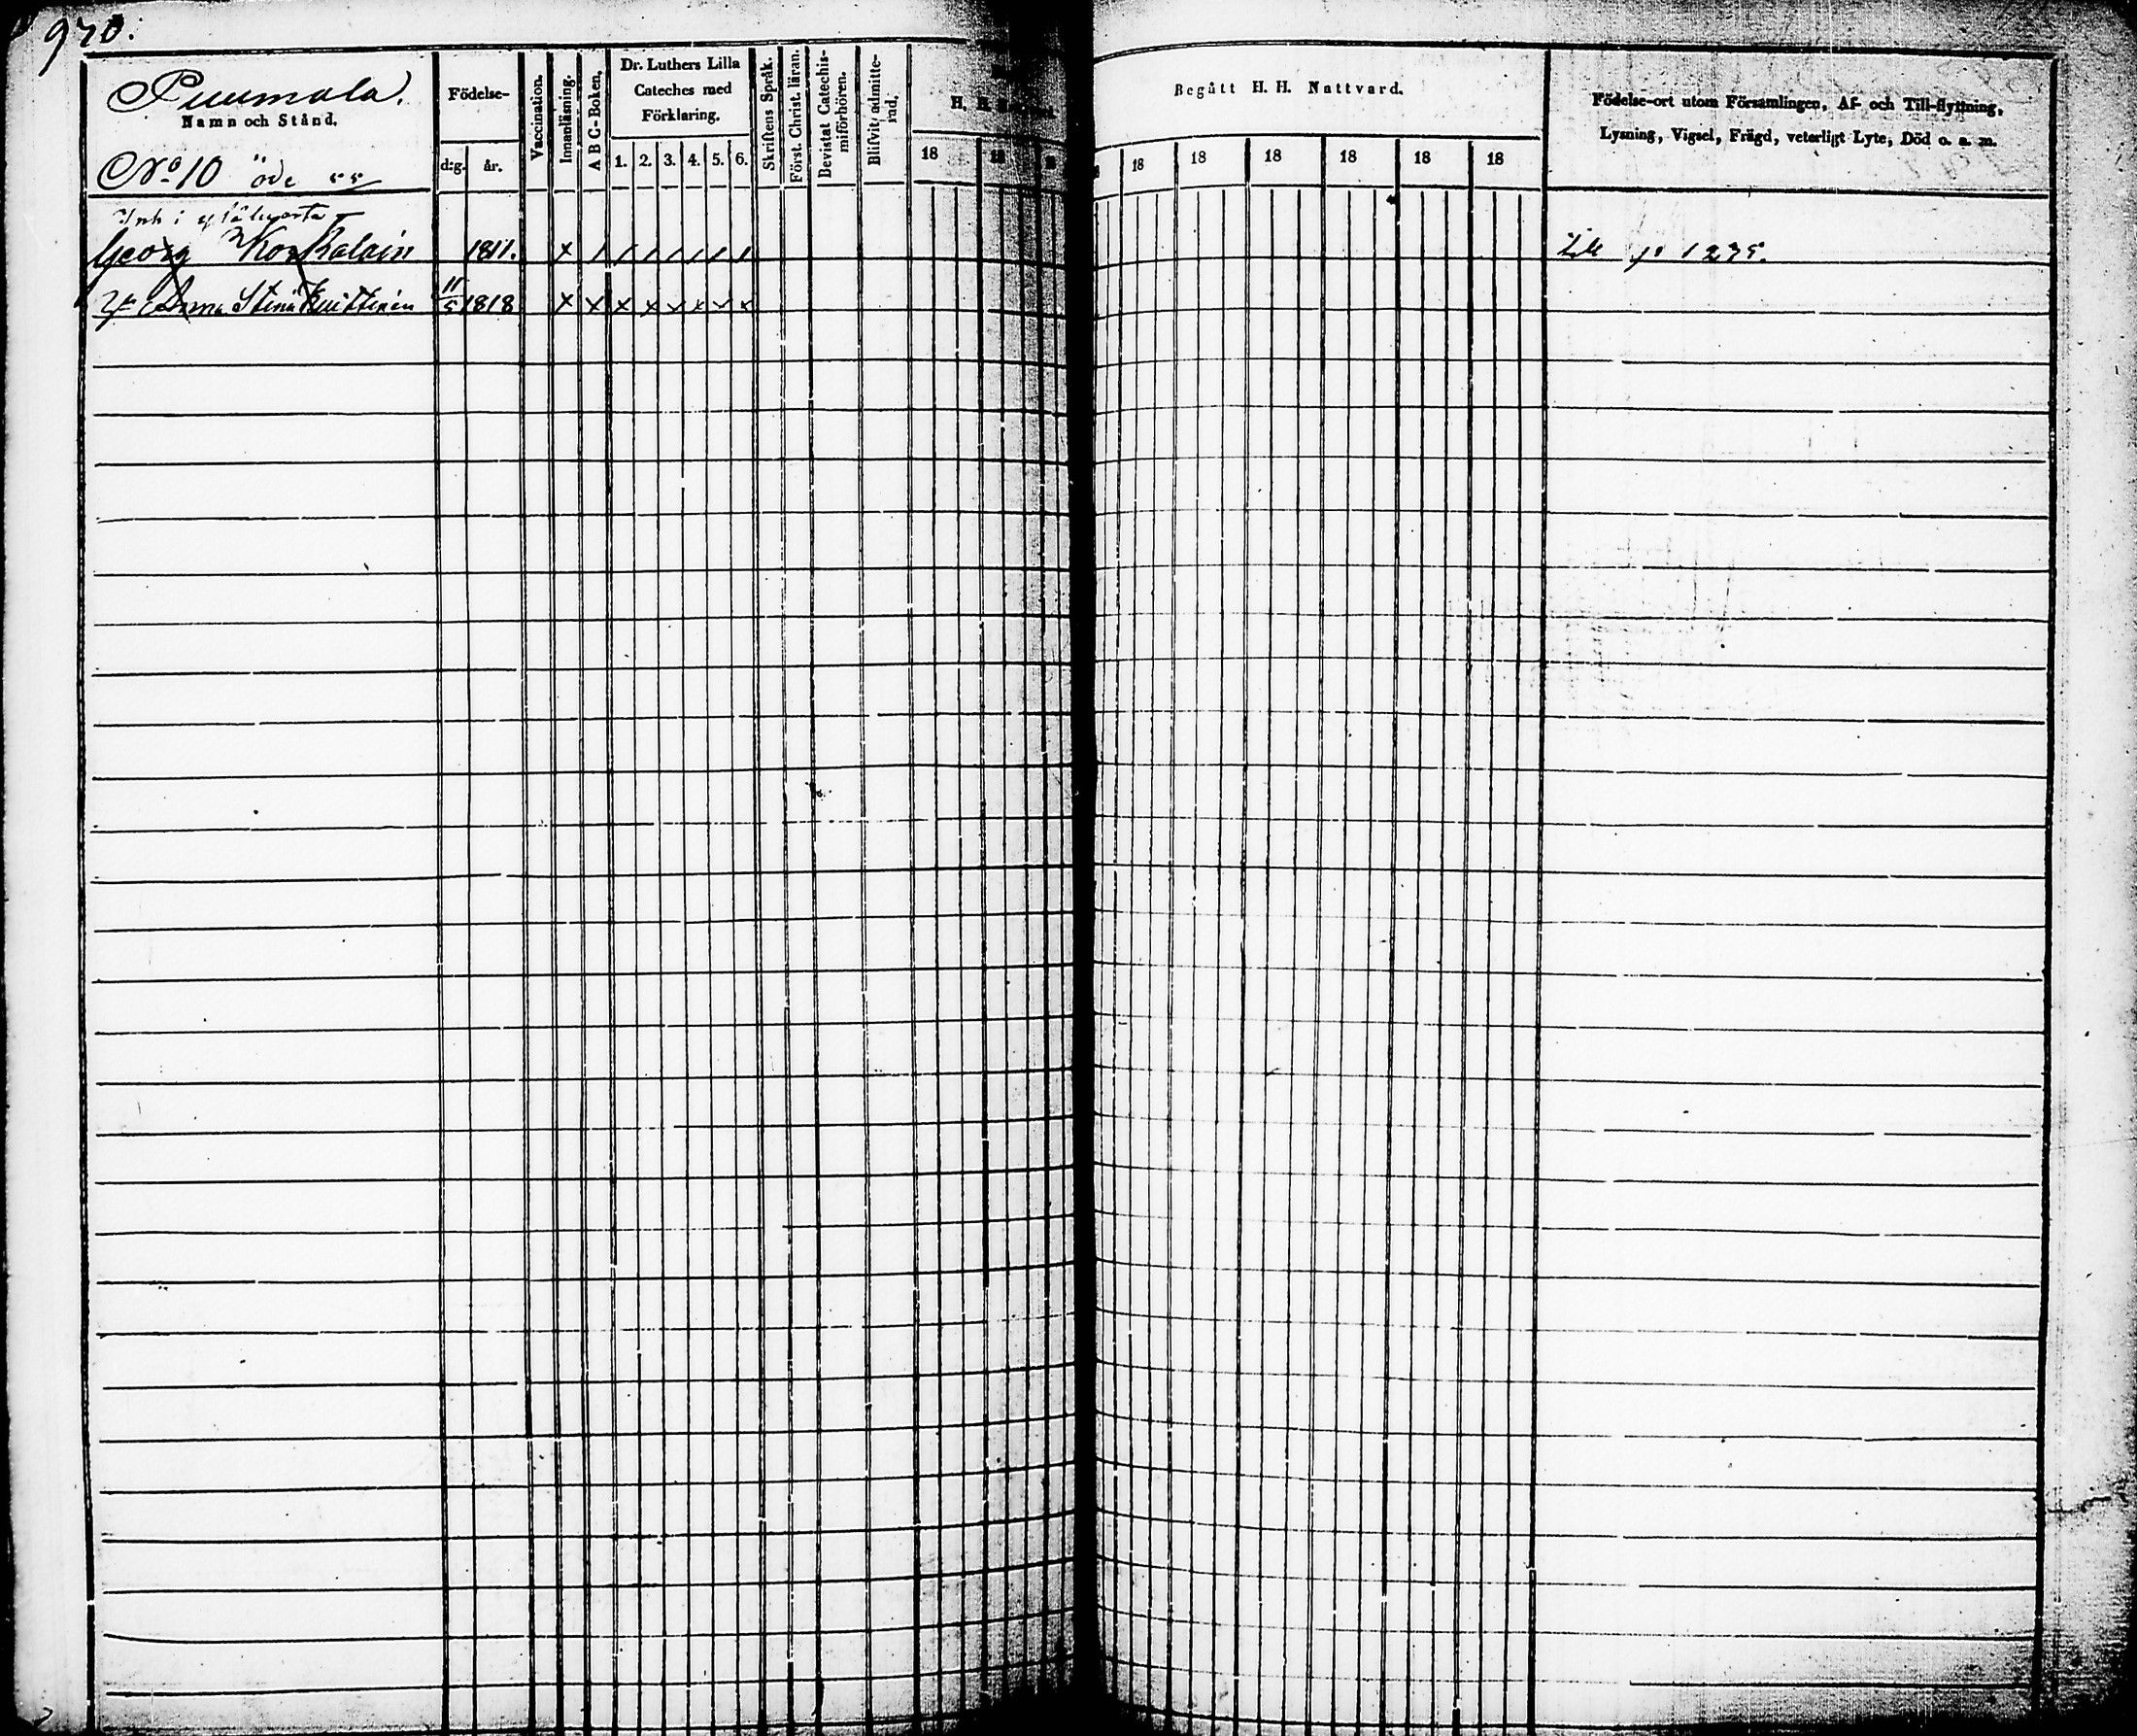 970.
Puumala.
Namn och Stånd.
No 10 öde
Födelse-
d:g. år.
Vaccination.
Innanläsning.
A B C-Boken.
Dr. Luthers Lilla
Cateches med
Förklaring.
1. 2. 3. 4. 5. 6.
Skriftens Språk.
Först. Christ. läran.
Bevistat Catechis-
miförhören.
Blifvit admitte-
rad.
H. H.
18 18
Begått H. H. Nattvard.
18 18 18 18 18 18
Födelse-ort utom Församlingen, Af- och Till-flyttning,
Lysning, Vigsel, Frägd, veterligt Lyte, Död o. a. m.
Inh i
Georg 1811. x / / / / / / / 1275.
Stina 11/5 1818 x x x x x x x x